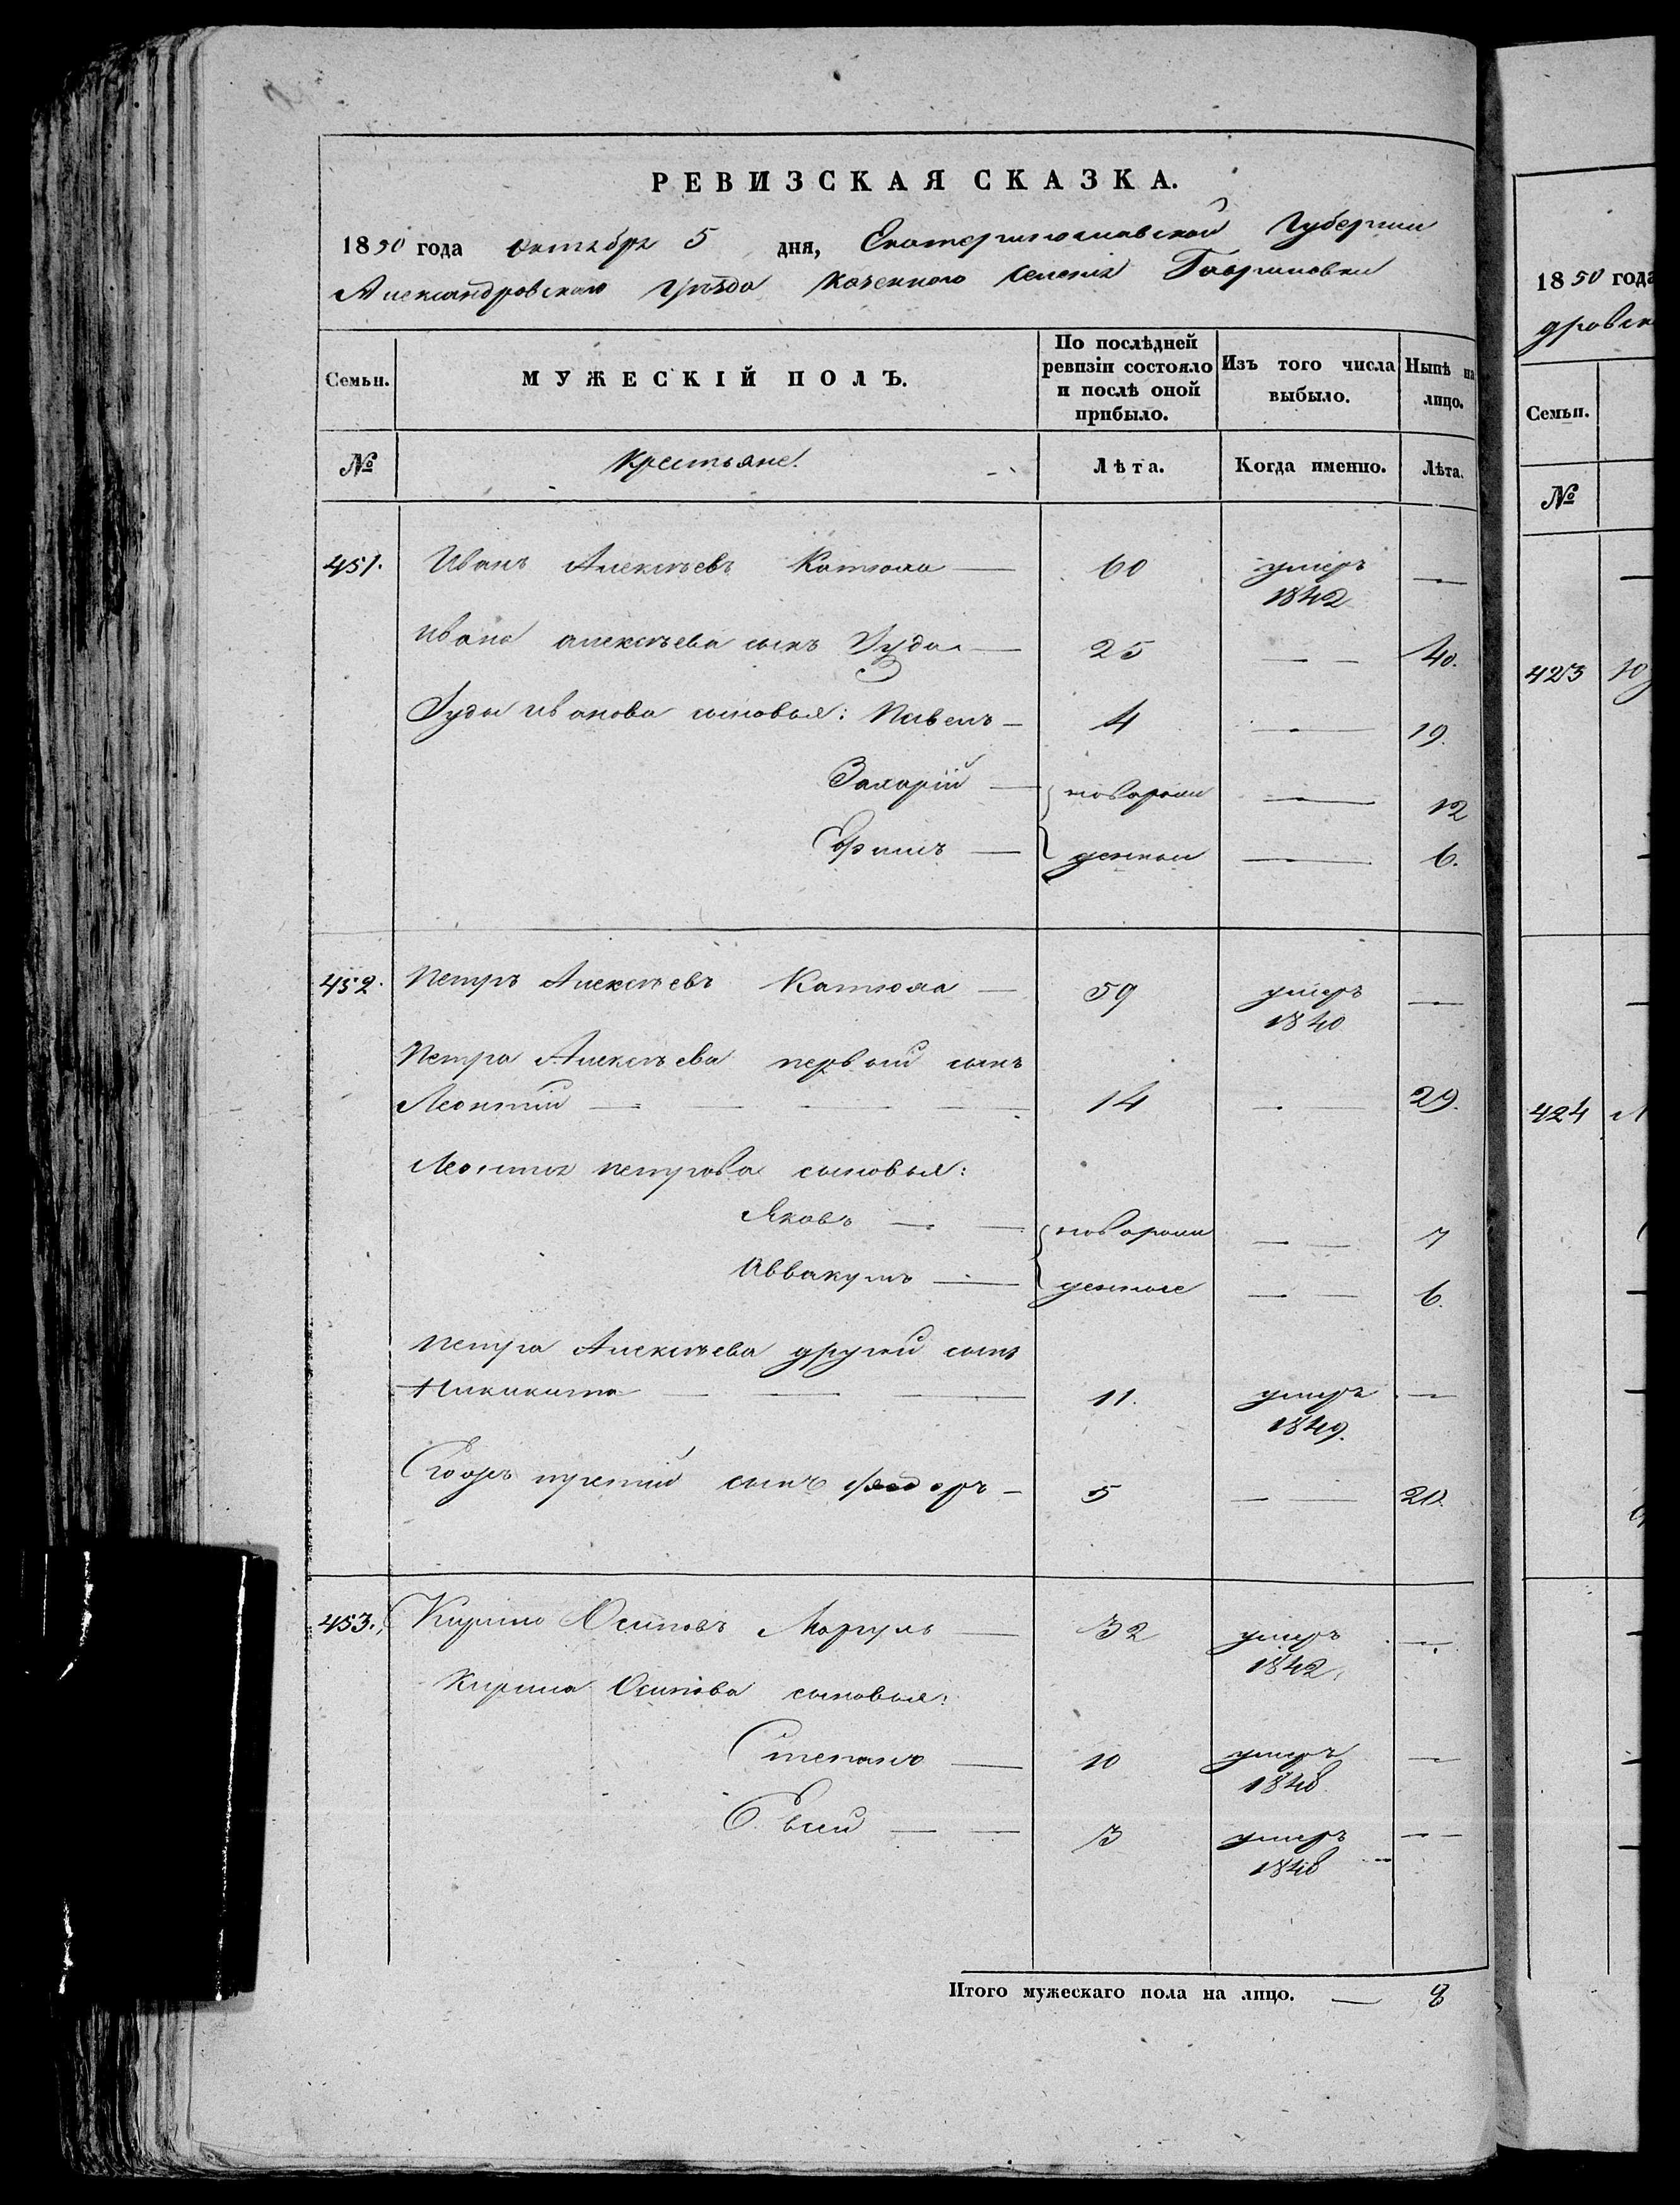 РЕВИЗСКАЯ СКАЗКА.
1850 года октября 5 дня, Екатеринославской Губернии
Александровского Уѣзда Казенного селения Гавриловки
Семьи. МУЖЕСКІЙ ПОЛЪ. По послѣдней ревизіи состояло и послѣ оной прибыло. Изъ того числа выбыло. Нынѣ на лицо.
№ Крестьяне. Лѣта. Когда именно. Лѣта.
451. Иванъ Алексѣевъ Катюха — 60 умеръ 1842 —
Ивана алексѣева сынъ Іуда — 25 — 40.
Іуды иванова сыновья: Павелъ — 4 — 19.
Захарій — новорож — 12
Ефимъ — денныи — 6.
452. Петръ Алексѣевъ Катюха — 59 умеръ 1840 —
Петра Алексѣева первый сынъ
Леонтій — 14 — 29.
Леонтія петрова сыновья:
Яковъ — новорож — 7
Аввакумъ — денные — 6.
Петра Алексѣева другий сынъ
Никикита — 11. умеръ 1849. —
Егожъ третий сынъ Федоръ — 5 — 20.
453. Кирило Осиповъ Моргуль — 32 умеръ 1842 —
Кирила Осипова сыновья:
Степанъ — 10 умеръ 1848 —
Евсей — 3 умеръ 1848 —
Итого мужескаго пола на лицо. — 8
1850 года
дровск
Семьи.
№
423
424